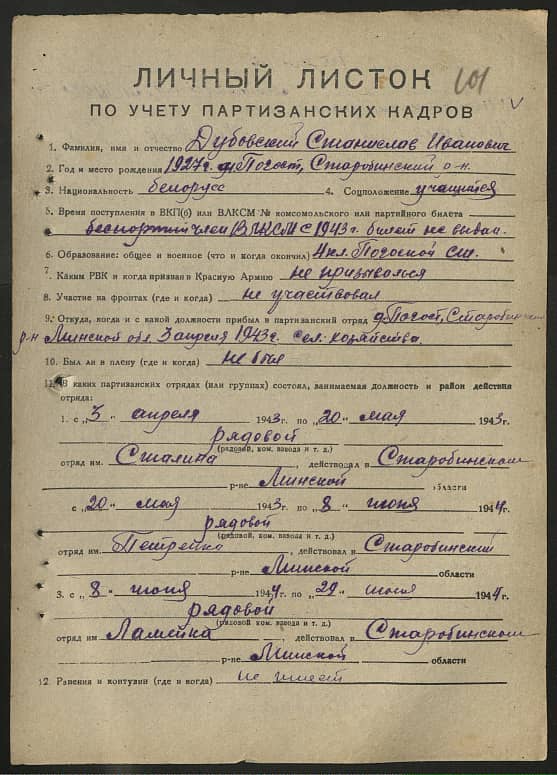 ЛИЧНЫЙ ЛИСТОК 101
ПО УЧЕТУ ПАРТИЗАНСКИХ КАДРОВ
1. Фамилия, имя и отчество Дубовский Станислав Иванович
2. Год и место рождения 1927 г. д. Погост, Старобинский р-н.
3. Национальность белорусс 4. Соцположение учащийся
5. Время поступления в ВКП(б) или ВЛКСМ № комсомольского или партийного билета
член ВЛКСМ с 1943 г. билет не выдан.
6. Образование: общее и военное (что и когда окончил) 4 кл. Погоской сш.
7. Каким РВК и когда призван в Красную Армию не призывался
8. Участие на фронтах (где и когда) не участвовал
9. Откуда, когда и с какой должности прибыл в партизанский отряд д. Погост, Старобинский
р-н Минской обл. 3 апреля 1943 г. сел. хозяйства.
10. Был ли в плену (где и когда) не был
11. В каких партизанских отрядах (или группах) состоял, занимаемая должность и район действия
отряда:
1. с „3" апреля 1943 г. по „20" мая 1943 г.
рядовой
(рядовой, ком. взвода и т. д.)
отряд им. Сталина, действовал в Старобинском
р-не Минской области
с „20" мая 1943 г. по „8" июня 1944 г.
рядовой
(рядовой, ком. взвода и т. д.)
отряд им. действовал в Старобинский
р-не Минской области
3. с „8" июня 1944 г. по „29" июня 1944 г.
рядовой
(рядовой ком. взвода и т. д.)
отряд им Ламейка, действовал в Старобинском
р-не Минской области
12. Ранения и контузии (где и когда) не имеет